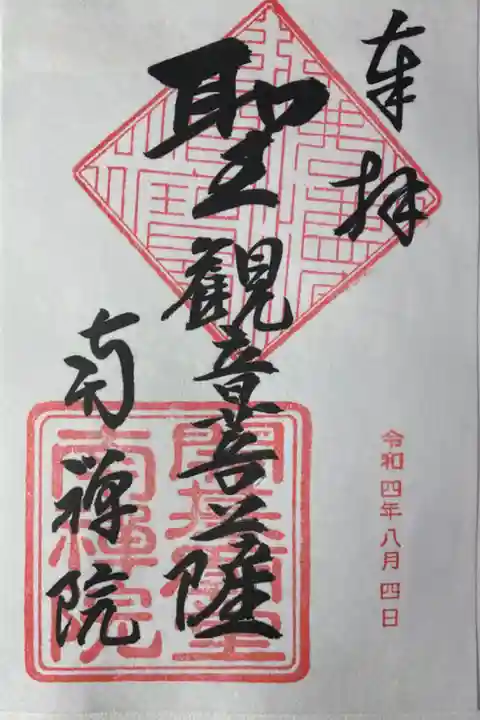 奉拝
聖観音菩薩
南禅院
令和四年八月四日